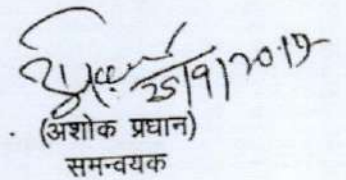 25/9/2017
(अशोक प्रधान)
समन्वयक